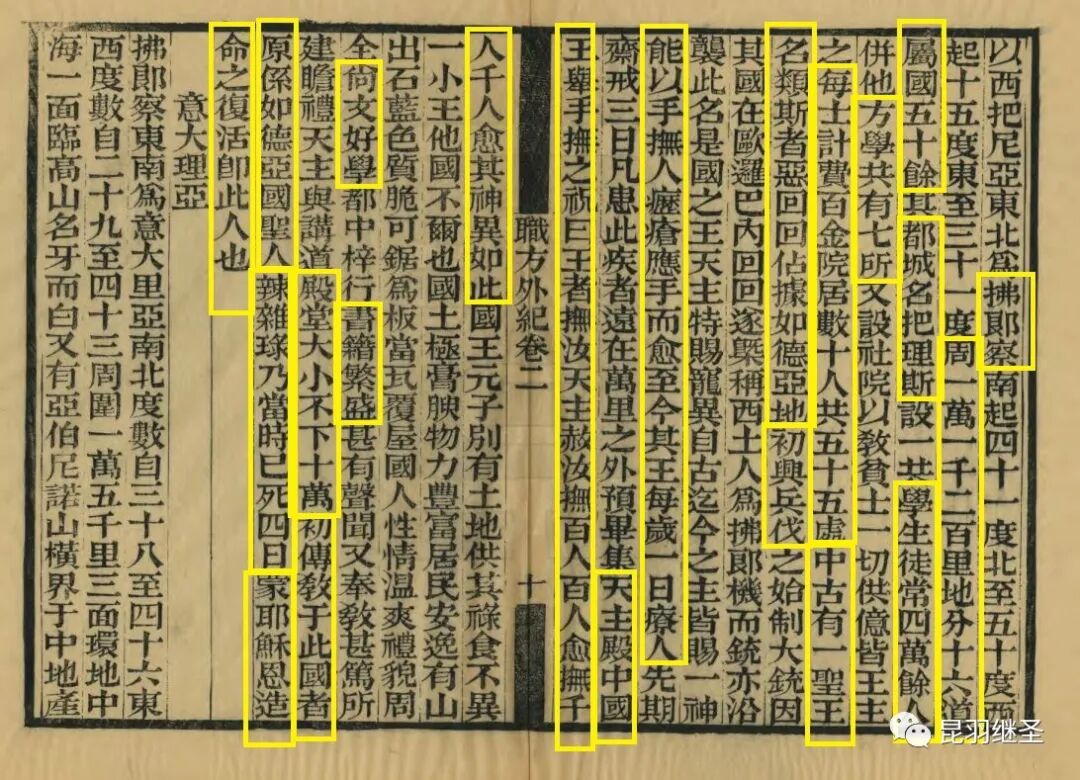 以西把尼亞東北爲拂郎察南起四十一度北至五十度西
起十五度東至三十一度周一萬一千二百里地分十六道
屬國五十餘其都城名把理斯設一共學生徒常四萬餘人
併他方學共有七所又設社院以教貧士一切供億皆王主
之每士計費百金院居數十人共五十五處中古有一聖王
名類斯者惡回回佔據如德亞地初興兵伐之始制大銃因
其國在歐邏巴內回回遂槩稱西土人爲拂郎機而銃亦沿
襲此名是國之王天主特賜寵異自古迄今之主皆賜一神
能以手撫人癧瘡應手而愈至今其王每歲一日療人先期
齋戒三日凡患此疾者遠在萬里之外預畢集天主殿中國
王舉手撫之祝曰王者撫汝天主赦汝撫百人百人愈撫千
職方外紀卷二 十
人千人愈其神異如此國王元子別有土地供其祿食不異
一小王他國不爾也國土極膏腴物力豐富居民安逸有山
出石藍色質脆可鋸爲板當瓦覆屋國人性情溫爽禮貌周
全尚文好學都中梓行書籍繁盛甚有聲聞又奉敎甚篤所
建瞻禮天主與講道殿堂大小不下十萬初傳敎于此國者
原係如德亞國聖人辣雜琭乃當時已死四日蒙耶穌恩造
命之復活卽此人也
意大理亞
拂郎察東南爲意大里亞南北度數自三十八至四十六東
西度數自二十九至四十三周圍一萬五千里三面環地中
海一面臨高山名牙而白又有亞伯尼諾山橫界于中地產
昆羽继圣